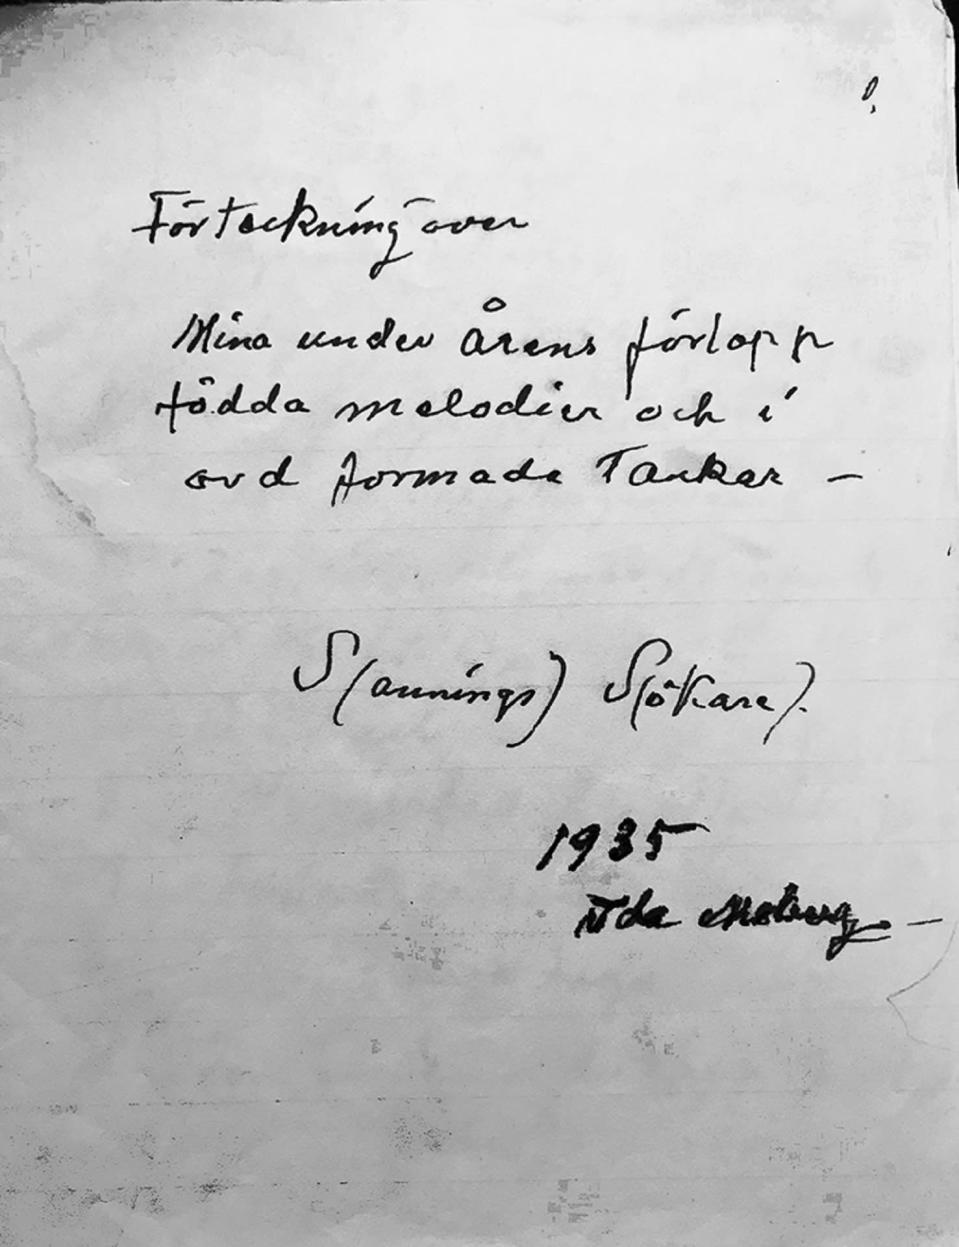 Förteckning över
Mina under Årens förlopp
födda melodier och i
ord formade Tankar —
S(annings) S(ökare).
1935
Ida Moberg —